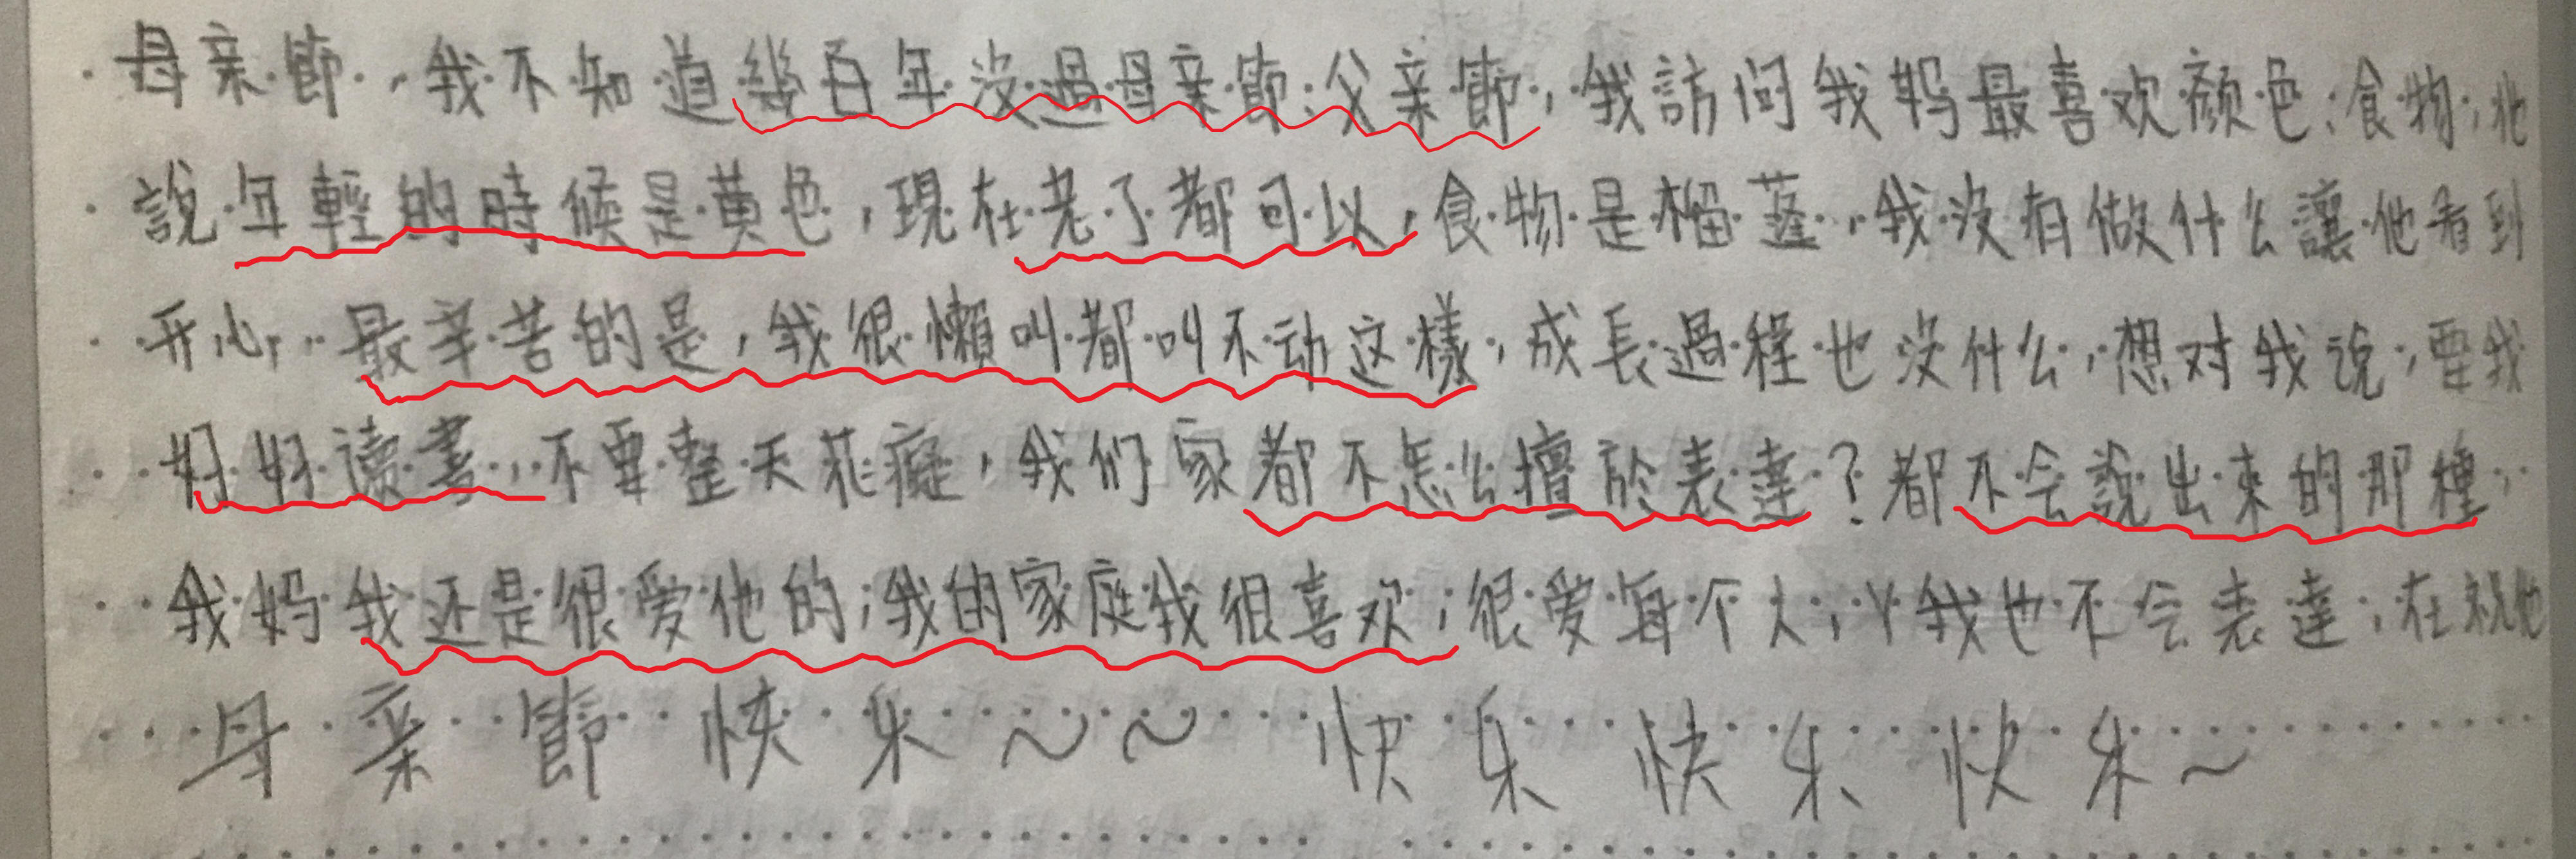 母亲節，我不知道幾百年没過母亲節；父亲節，我訪问我妈最喜欢颜色；食物；他
說年輕的時候是黄色，現在老了都可以，食物是榴莲，我没有做什么讓他看到
开心，最辛苦的是，我很懶叫都叫不动这樣，成長過程也没什么，想对我说，要我
好好读書，不要整天花癡，我们家都不怎么擅於表達？都不会說出来的那種，
我妈我还是很爱他的；我的家庭我很喜欢；很爱每个人，我也不会表達；在祝他
母亲節快乐～～ 快乐快乐快乐～